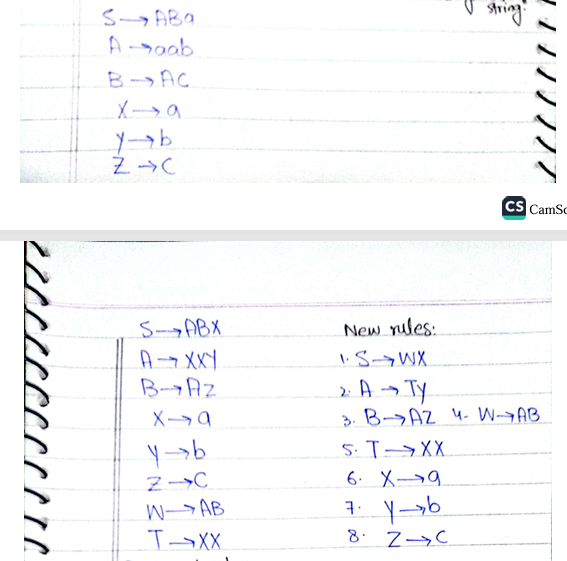 string:
S → ABa
A → aab
B → AC
X → a
Y → b
Z → C
CS CamSc
S → ABX
A → XXY
B → AZ
X → a
Y → b
Z → C
W → AB
T → XX
New rules:
1. S → WX
2. A → TY
3. B → AZ 4. W → AB
5. T → XX
6. X → a
7. Y → b
8. Z → C